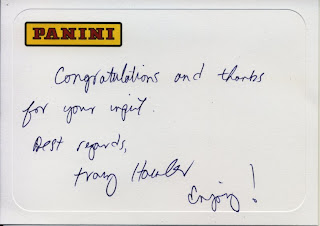 PANINI
Congratulations and thanks
for your input.
Best regards,
Tracy
Enjoy!